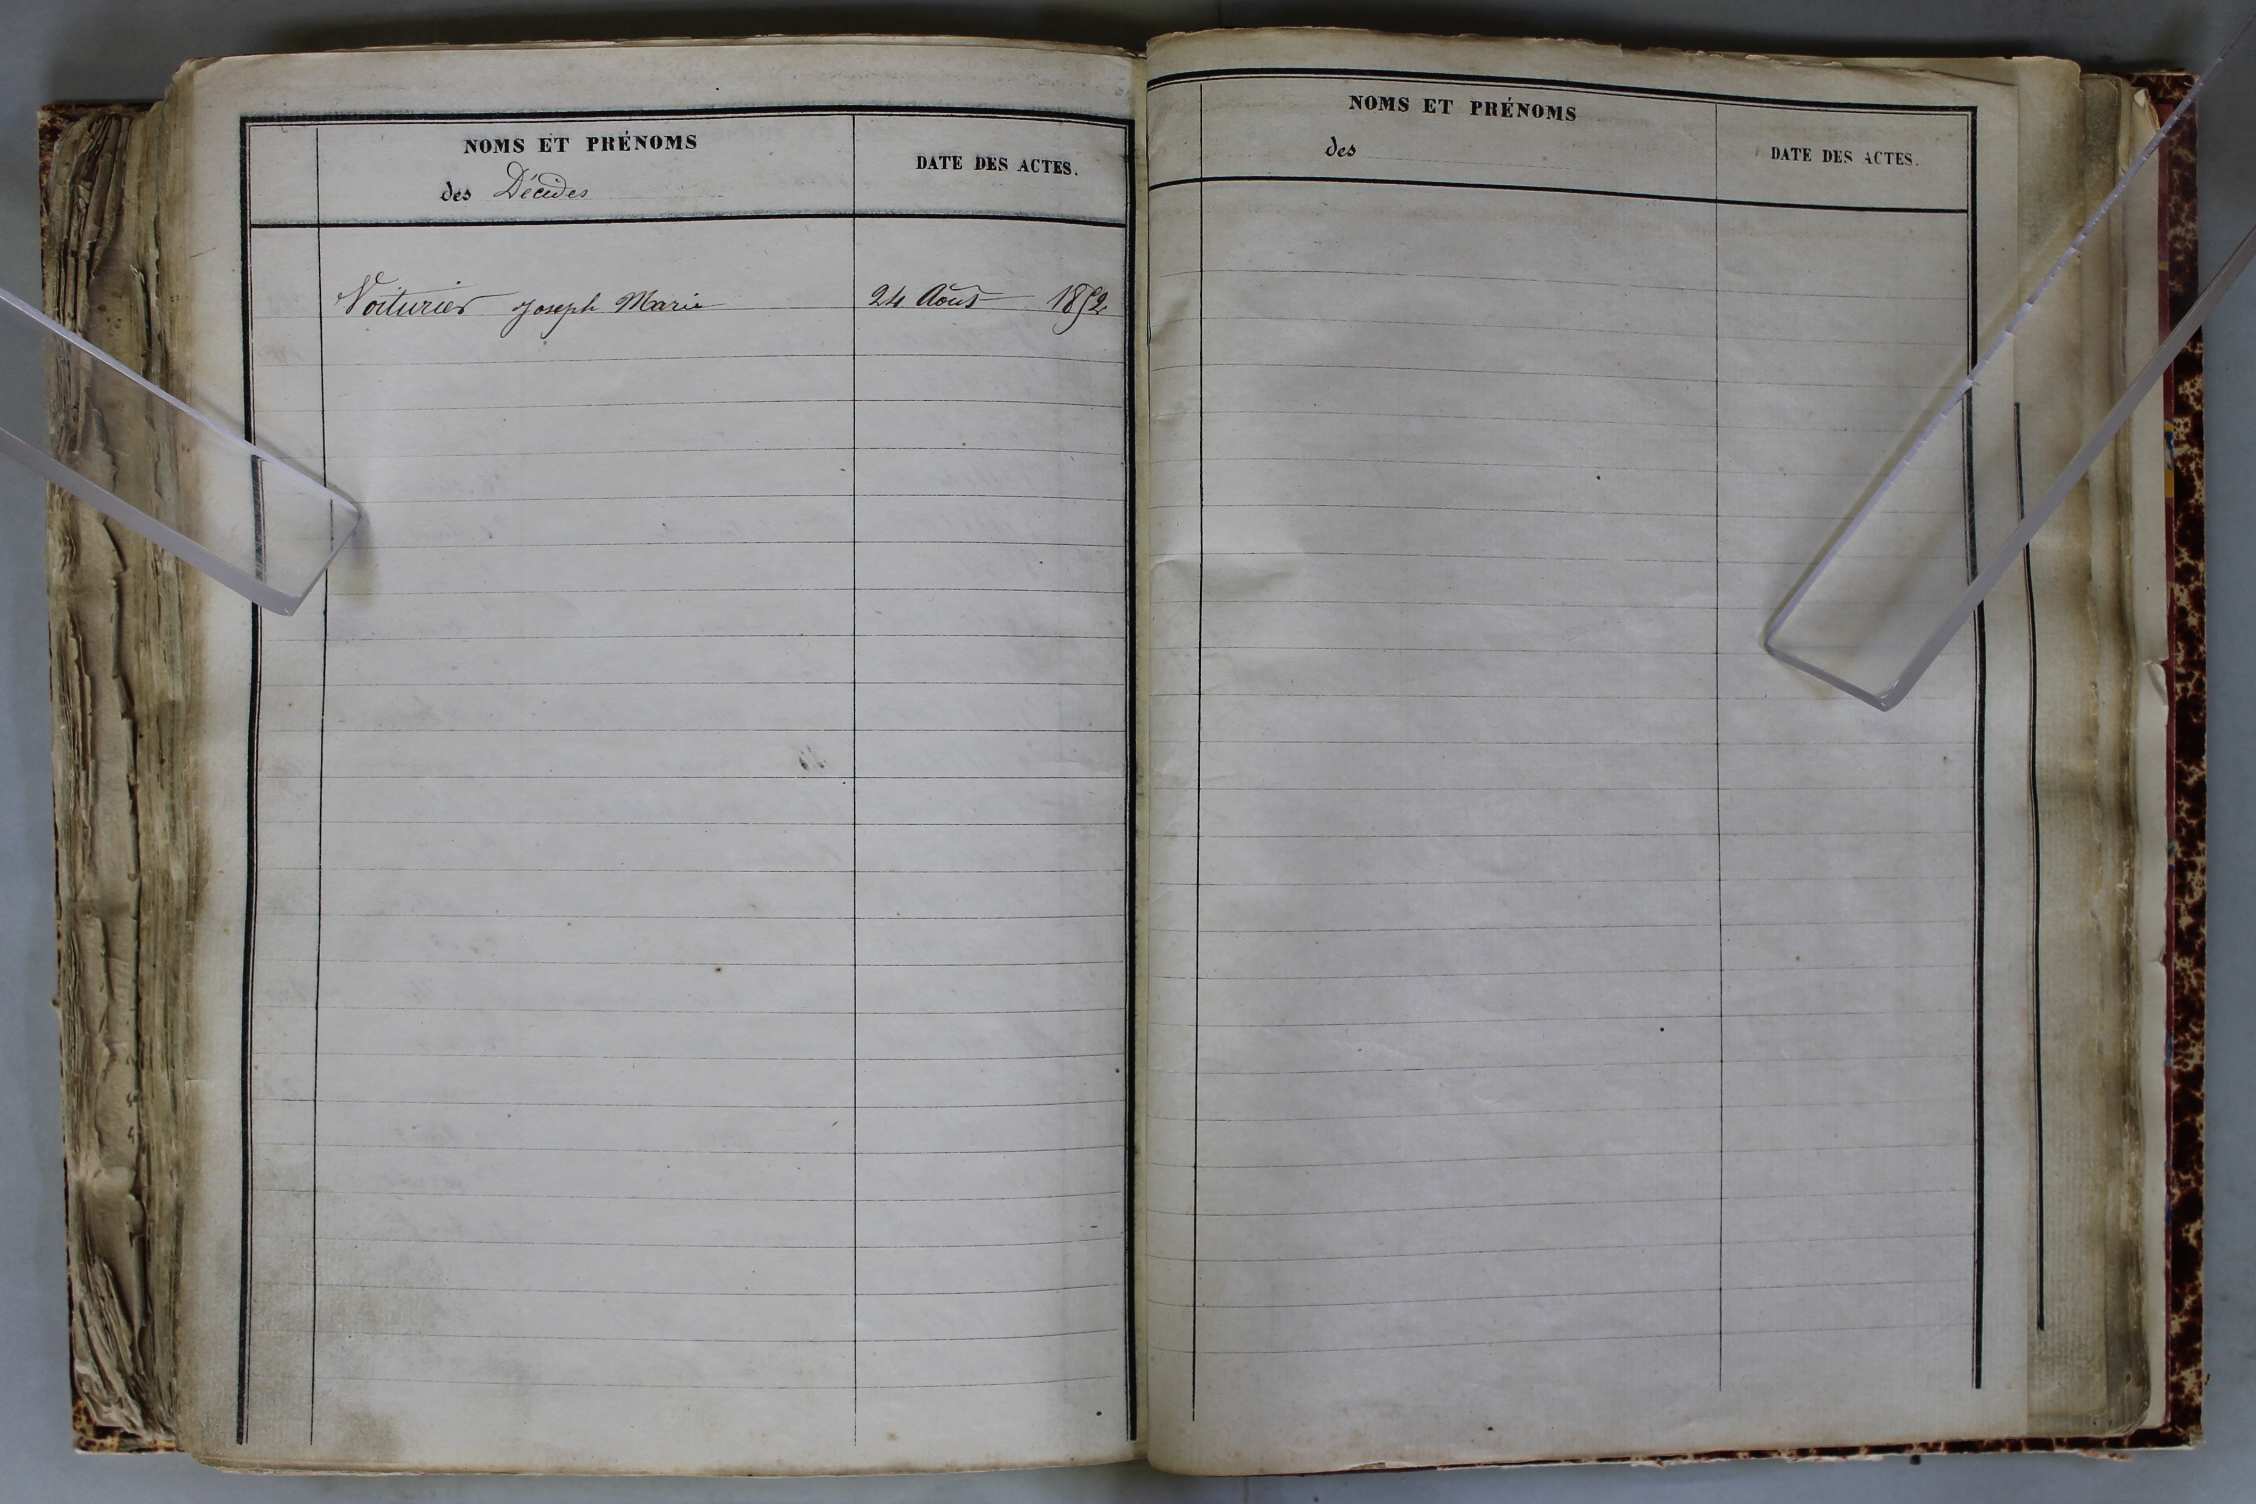 NOMS ET PRÉNOMS
des Décédés
DATE DES ACTES.
Voiturier Joseph Marie 24 Août 1852
NOMS ET PRÉNOMS
des
DATE DES ACTES.